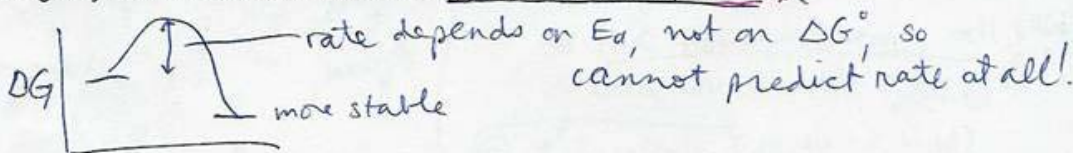 rate depends on Ea, not on ΔG°, so
cannot predict rate at all!
ΔG
more stable